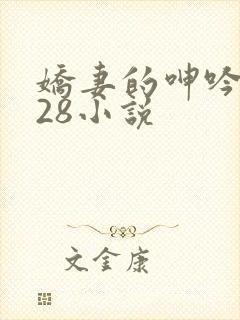 嬌妻的呻吟
28小說
文金康